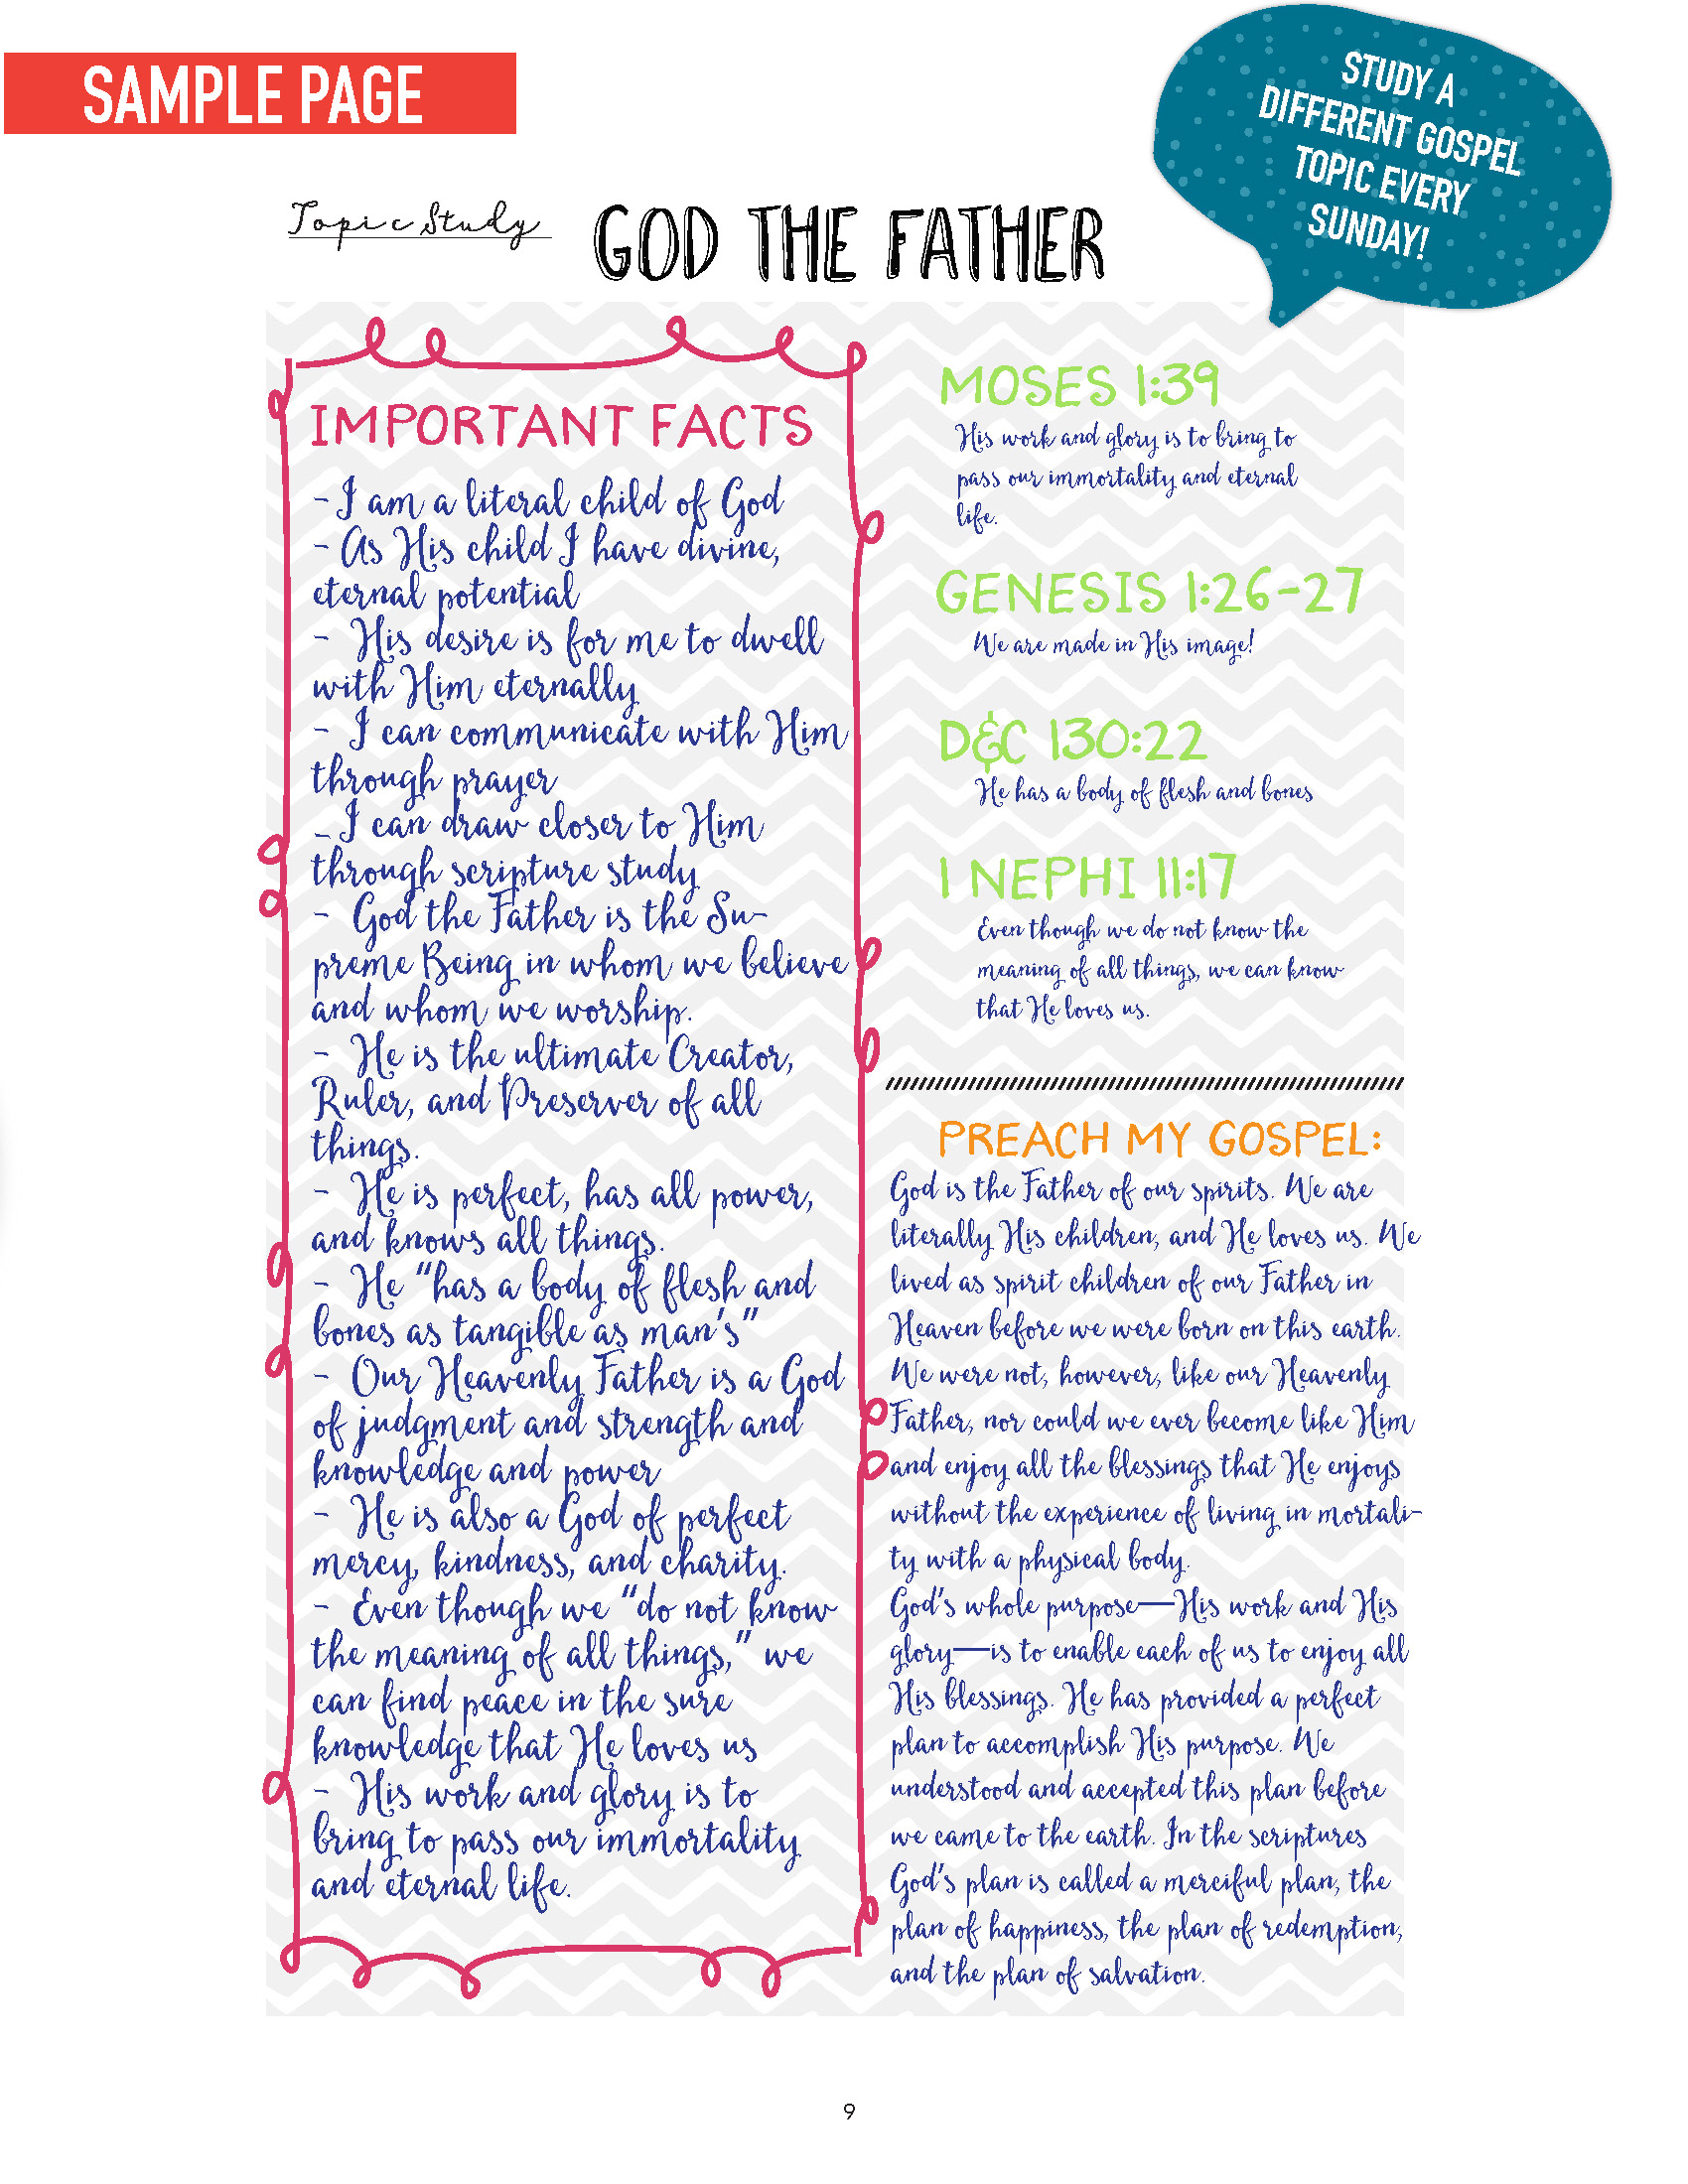 SAMPLE PAGE
STUDY A
DIFFERENT GOSPEL
TOPIC EVERY
SUNDAY!
Topic Study GOD THE FATHER
IMPORTANT FACTS
- I am a literal child of God
- As His child I have divine,
eternal potential
- His desire is for me to dwell
with Him eternally
- I can communicate with Him
through prayer
- I can draw closer to Him
through scripture study
- God the Father is the Su-
preme Being in whom we believe
and whom we worship.
- He is the ultimate Creator,
Ruler, and Preserver of all
things.
- He is perfect, has all power,
and knows all things.
- He "has a body of flesh and
bones as tangible as man's"
- Our Heavenly Father is a God
of judgment and strength and
knowledge and power
- He is also a God of perfect
mercy, kindness, and charity.
- Even though we "do not know
the meaning of all things," we
can find peace in the sure
knowledge that He loves us
- His work and glory is to
bring to pass our immortality
and eternal life.
MOSES 1:39
His work and glory is to bring to
pass our immortality and eternal
life.
GENESIS 1:26-27
We are made in His image!
D&C 130:22
He has a body of flesh and bones
1 NEPHI 11:17
Even though we do not know the
meaning of all things, we can know
that He loves us.
PREACH MY GOSPEL:
God is the Father of our spirits. We are
literally His children, and He loves us. We
lived as spirit children of our Father in
Heaven before we were born on this earth.
We were not, however, like our Heavenly
Father, nor could we ever become like Him
and enjoy all the blessings that He enjoys
without the experience of living in mortali-
ty with a physical body.
God's whole purpose—His work and His
glory—is to enable each of us to enjoy all
His blessings. He has provided a perfect
plan to accomplish His purpose. We
understood and accepted this plan before
we came to the earth. In the scriptures
God's plan is called a merciful plan, the
plan of happiness, the plan of redemption,
and the plan of salvation.
9